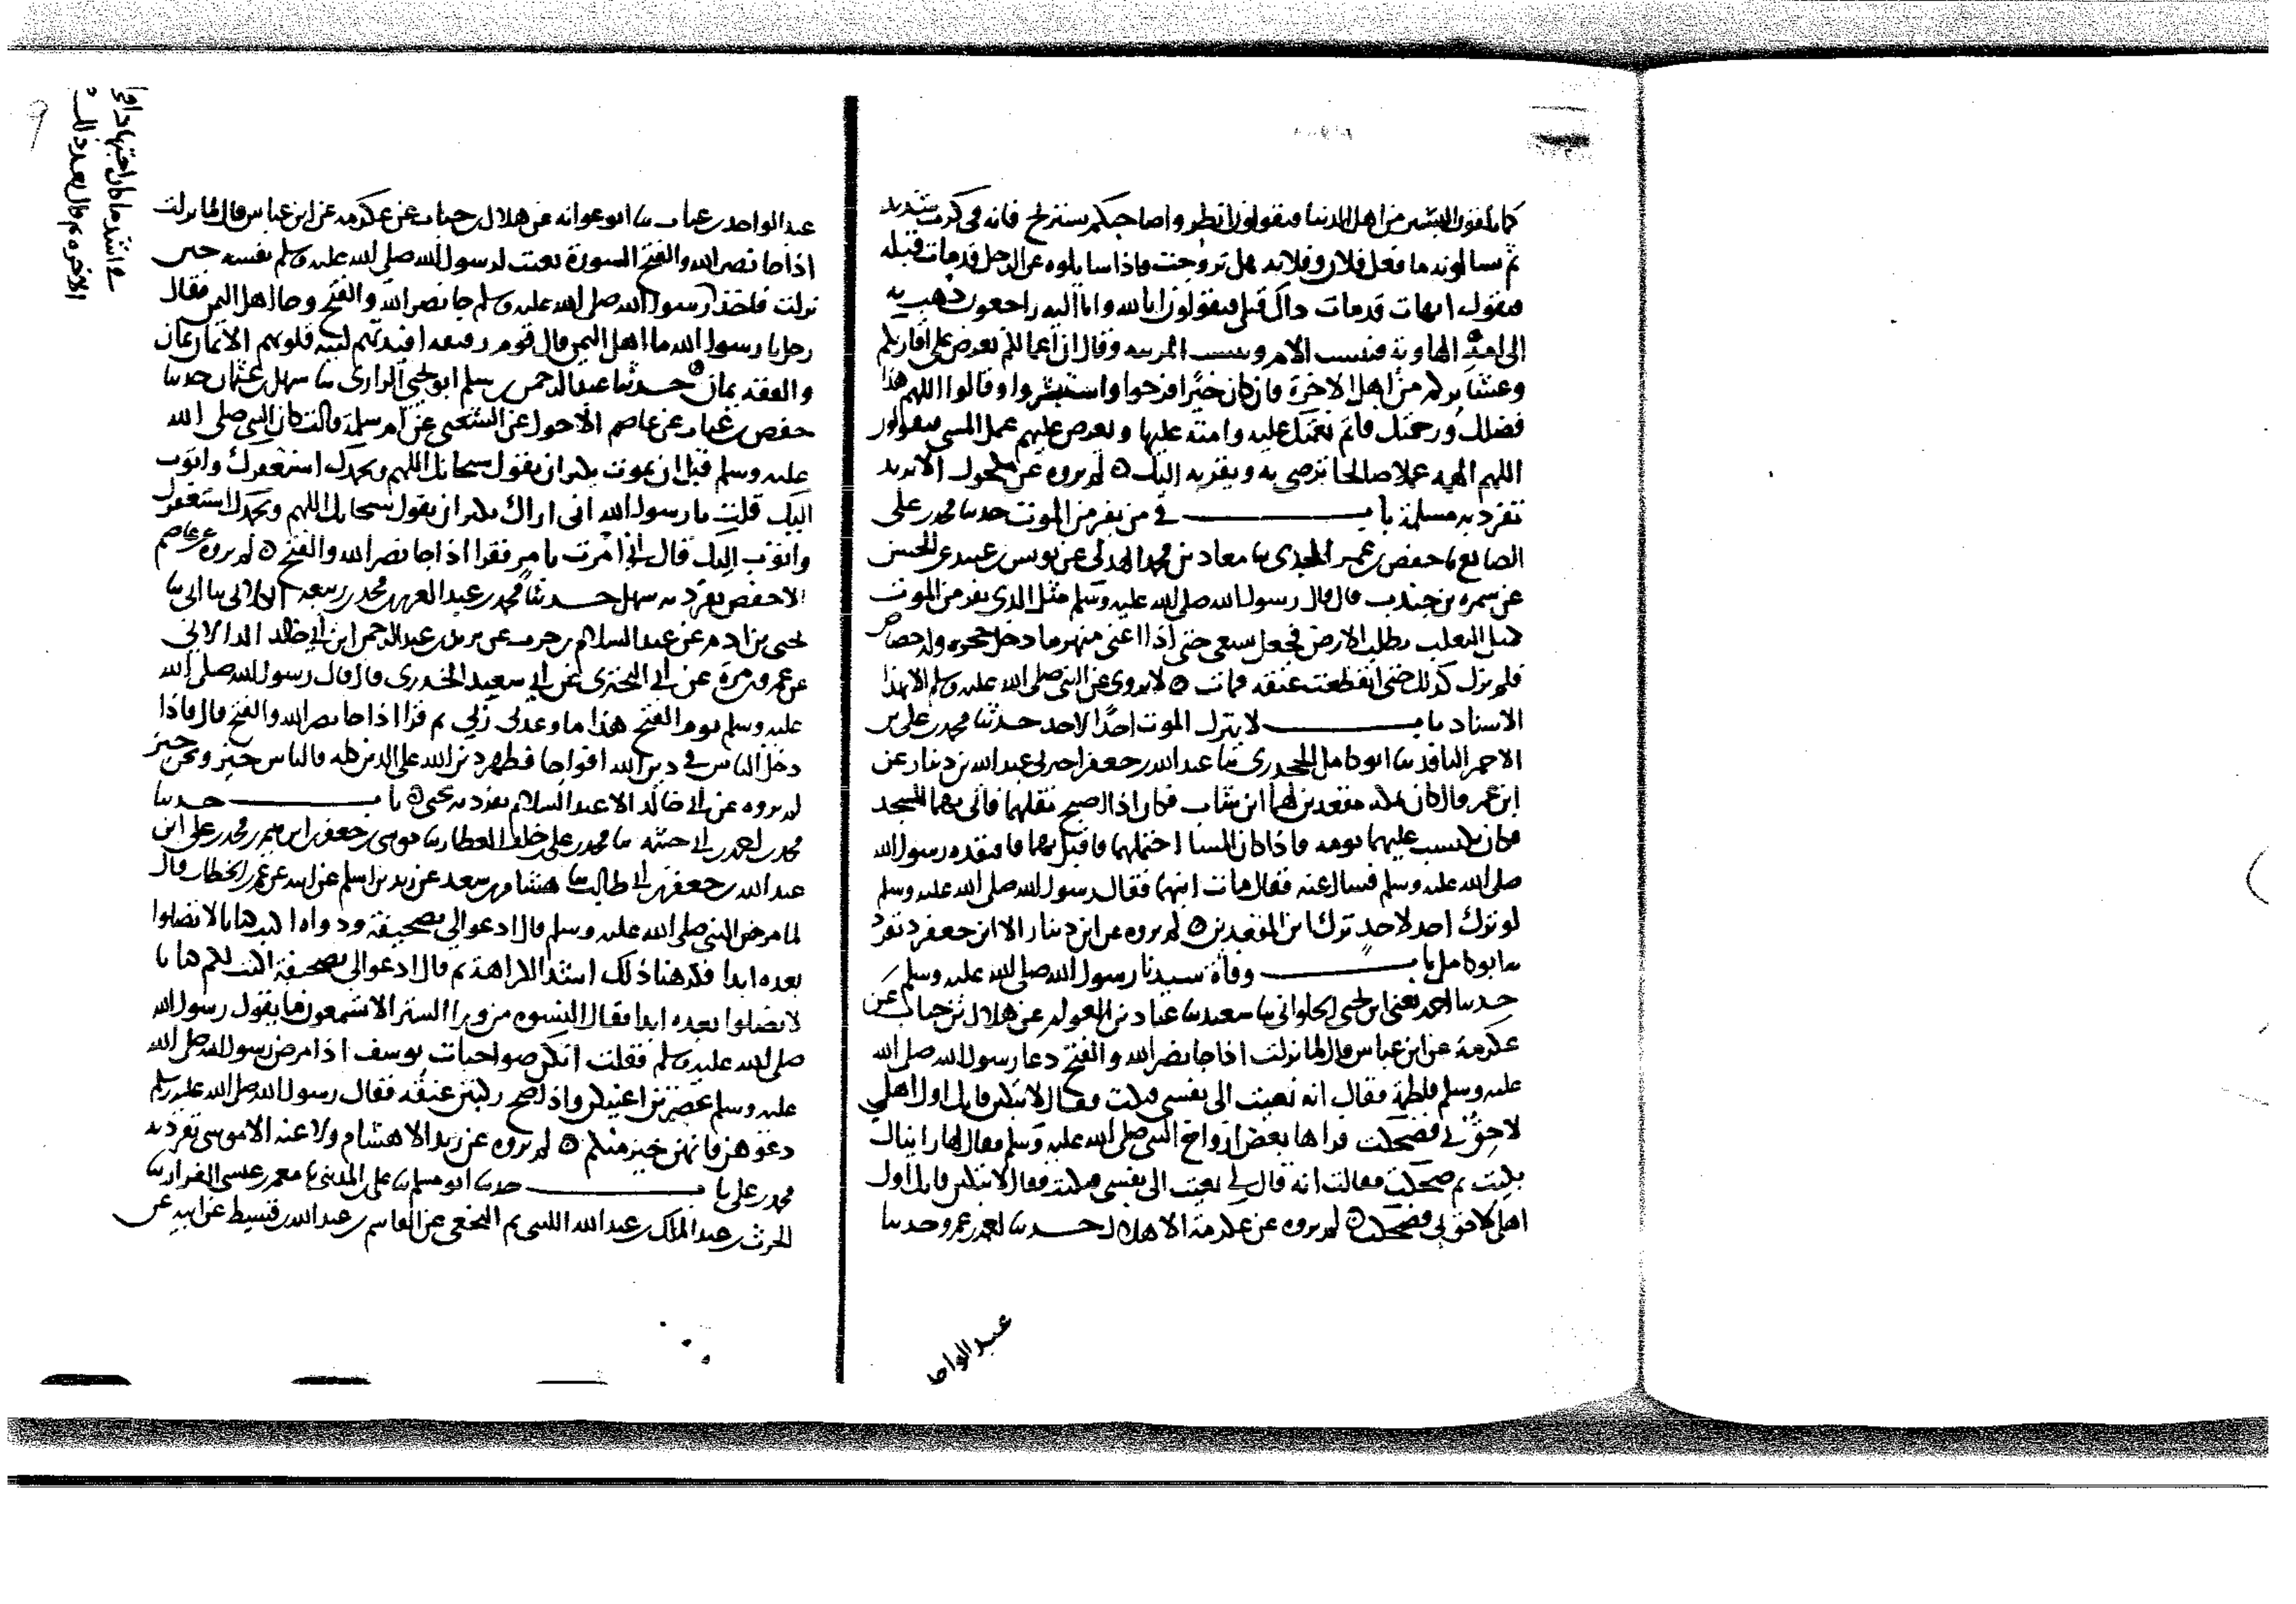 كما يلقون البشير من اهل الدنيا فيقولون انظروا صاحبكم يستريح فانه في كرب شديد
ثم يسالونه ما فعل فلان وفلانه هل تزوجت فاذا سالوه عن الرجل قد مات قبله
فيقول ايهات قد مات ذاك قبلي فيقولون انا لله وانا اليه راجعون ذهب به
الى امه الهاوية فبئست الام وبئست المربيه وقال ان اعمالكم تعرض على اقاربكم
وعشائركم من اهل الاخرة فان كان خيرا فرحوا واستبشروا وقالوا اللهم هذا
فضلك ورحمتك فاتم نعمتك عليه وامته عليها ويعرض عليهم عمل المسي فيقولون
اللهم الهمه عملا صالحا ترضى به ويقربه اليك ٥ لم يروه عن مكحول الا يزيد
تفرد به مسلمة باب في من يفر من الموت حدثنا محمد بن علي
الصايغ ثنا حفص بن عمر الجدي ثنا معاذ بن محمد الهذلي عن يونس بن عبيد عن الحسن
عن سمره بن جندب قال قال رسول الله صلى الله عليه وسلم مثل الذي يفر من الموت
مثل الثعلب يطلبه الارض فجعل يسعى حتى اذا اعيى وانبهر دخل جحره وله حصاص
فلم يزل كذلك حتى انقطعت عنقه فمات ٥ لا يروى عن النبي صلى الله عليه وسلم الا بهذا
الاسناد باب لا يترك الموت احدا لاحد حدثنا محمد بن علي بن
الاحمر الناقد ثنا ابو كامل الجحدري ثنا عبد الله بن جعفر اخبرني عبد الله بن دينار عن
ابن عمر قال كان بمكه مقعدين لهما ابن شاب فكان اذا اصبح نقلهما فاتى بهما المسجد
فكان يكتسب عليهما يومه فاذا كان المسا احتملهما فاقبل بهما فافتقده رسول الله
صلى الله عليه وسلم فسال عنه فقال مات ابنهما فقال رسول الله صلى الله عليه وسلم
لو ترك احد لاحد ترك ابن المقعدين ٥ لم يروه عن ابن دينار الا ابن جعفر تفرد
به ابو كامل باب وفاة سيدنا رسول الله صلى الله عليه وسلم
حدثنا احمد يعني ابن يحيى الحلواني ثنا سعيد ثنا عباد بن العوام عن هلال بن خباب عن
عكرمة عن ابن عباس قال لما نزلت اذا جا نصر الله والفتح دعا رسول الله صلى الله
عليه وسلم فاطمة فقال انه نعيت الي نفسي فبكت فقال لا تبكين فانك اول اهلي
لاحق بي فضحكت فراها بعض ازواج النبي صلى الله عليه وسلم فقال لها رايناك
بكيت ثم ضحكت فقالت انه قال لي نعيت الي نفسي فبكيت فقال لا تبكين فانك اول
اهلي لاحق بي فضحكت ٥ لم يروه عن عكرمة الا هلال حدثنا احمد بن عمرو حدثنا
عبد الواحد
عبد الواحد بن غياث ثنا ابو عوانه عن هلال بن خباب عن عكرمه عن ابن عباس قال لما نزلت
اذا جا نصر الله والفتح السورة نعيت لرسول الله صلى الله عليه وسلم نفسه حين
نزلت فاخذ رسول الله صلى الله عليه وسلم جا نصر الله والفتح وجا اهل اليمن فقال
رجل يا رسول الله ما اهل اليمن قال قوم رقيقه افئدتهم لينه قلوبهم الايمان يمان
والفقه يمان ٥ حدثنا عبد الرحمن بن سلم ابو يحيى الرازي ثنا سهل بن عثمان حدثنا
حفص بن غياث عن عاصم الاحول عن الشعبي عن ام سلمة قالت كان النبي صلى الله
عليه وسلم قبل ان يموت يكثر ان يقول سبحانك اللهم وبحمدك استغفرك واتوب
اليك قلت يا رسول الله اني اراك تكثر ان تقول سبحانك اللهم وبحمدك استغفرك
واتوب اليك قال اني امرت بامر فقرا اذا جا نصر الله والفتح ٥ لم يروه عن عاصم
الا حفص تفرد به سهل حدثنا محمد بن عبد العزيز بن محمد بن ربيعه الكلابي ثنا ابي ثنا
يحيى بن ادم عن عبد السلام بن حرب عن يزيد بن عبد الرحمن ابي خالد الدالاني
عن عمرو بن مرة عن ابي البختري عن ابي سعيد الخدري قال قال رسول الله صلى الله
عليه وسلم يوم الفتح هذا ما وعدني ربي ثم قرا اذا جا نصر الله والفتح قال فاذا
دخل الناس في دين الله افواجا فظهر دين الله على الدين كله فالناس حيز ونحن حيز
لم يروه عن ابي خالد الا عبد السلام تفرد به يحيى ٥ باب حدثنا
محمد بن احمد بن ابي خيثمه ثنا محمد بن علي بن خلف العطار ثنا موسى بن جعفر بن ابرهيم بن محمد بن علي ابن
عبد الله بن جعفر بن ابي طالب ثنا هشام بن سعد عن زيد بن اسلم عن ابيه عن عمر بن الخطاب قال
لما مرض النبي صلى الله عليه وسلم قال ادعوا لي بصحيفة ودواة اكتب كتابا لا تضلوا
بعده ابدا فكرهنا ذلك اشد الكراهة ثم قال ادعوا لي بصحيفة اكتب لكم كتابا
لا تضلوا بعده ابدا فقال النسوه من ورا الستر الا تسمعون ما يقول رسول الله
صلى الله عليه وسلم فقلت انكن صواحبات يوسف اذا مرض رسول الله صلى الله
عليه وسلم عصرتن اعينكن واذا صح ركبتن عنقه فقال رسول الله صلى الله عليه وسلم
دعوهن فانهن خير منكم ٥ لم يروه عن زيد الا هشام ولا عنه الا موسى تفرد به
محمد بن علي باب حدثنا ابو مسلم ثنا علي بن المديني ثنا معن بن عيسى القزاز ثنا
الحرث بن عبد الملك بن عبد الله الليثي ثم النخعي عن القاسم بن عبد الله بن قسيط عن ابيه عن
الاخره ثم قال بعد ذلك